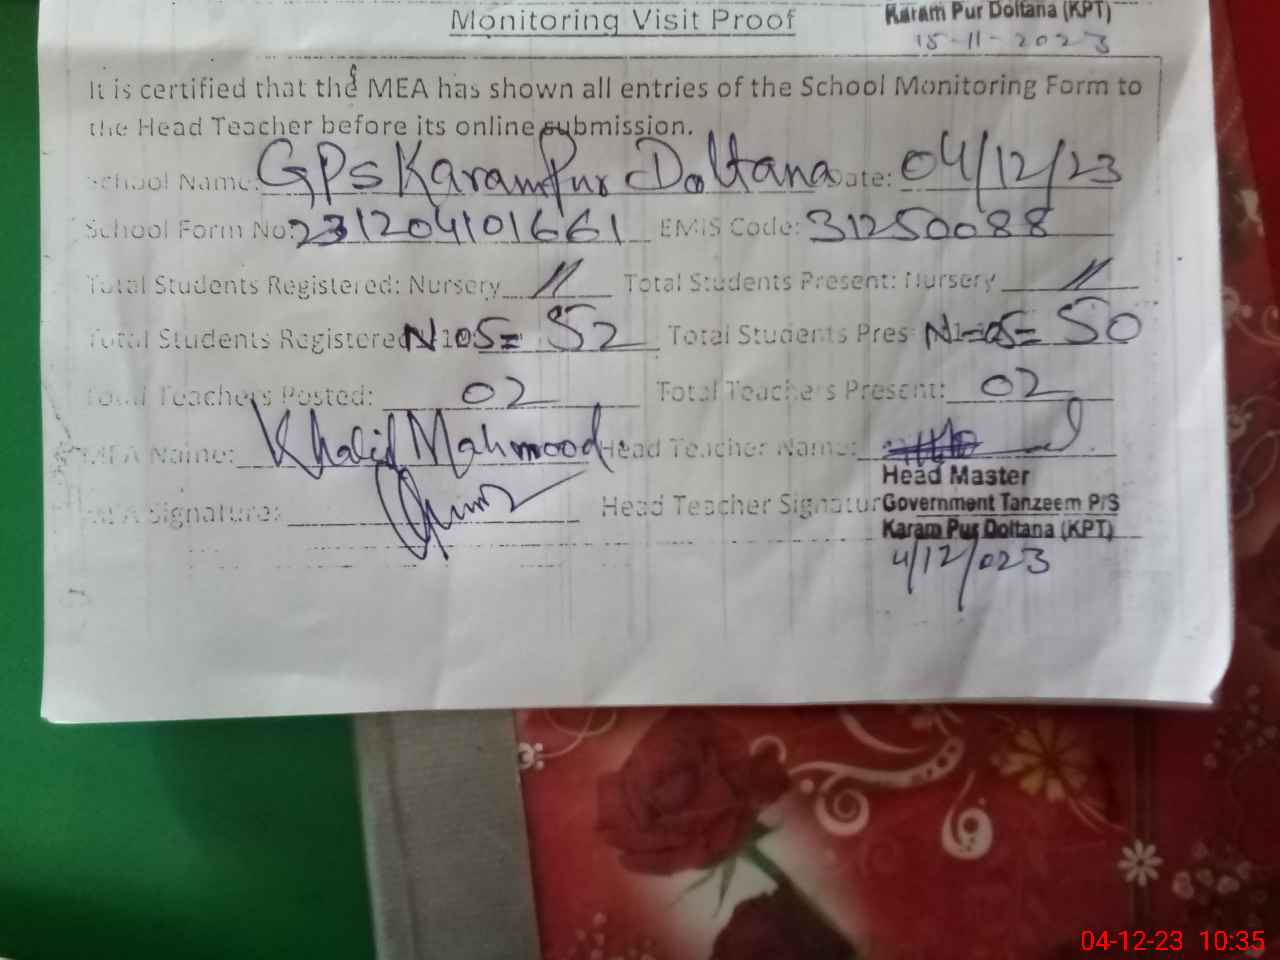 Monitoring Visit Proof
Karam Pur Doltana (KPT)
15-11-2023
It is certified that the MEA has shown all entries of the School Monitoring Form to
the Head Teacher before its online submission.
School Name: GPS KaramPur Doltana Date: 04/12/23
School Form No: 231204101661 EMIS Code: 31250088
Total Students Registered: Nursery 11 Total Students Present: Nursery 11
Total Students Registered N to 5 = 52 Total Students Pres N to 5 = 50
Total Teachers Posted: 02 Total Teachers Present: 02
MEA Name: Khalid Mahmood Head Teacher Name:
MEA Signature: Head Teacher Signatur
Head Master
Government Tanzeem P/S
Karam Pur Doltana (KPT)
4/12/023
04-12-23 10:35